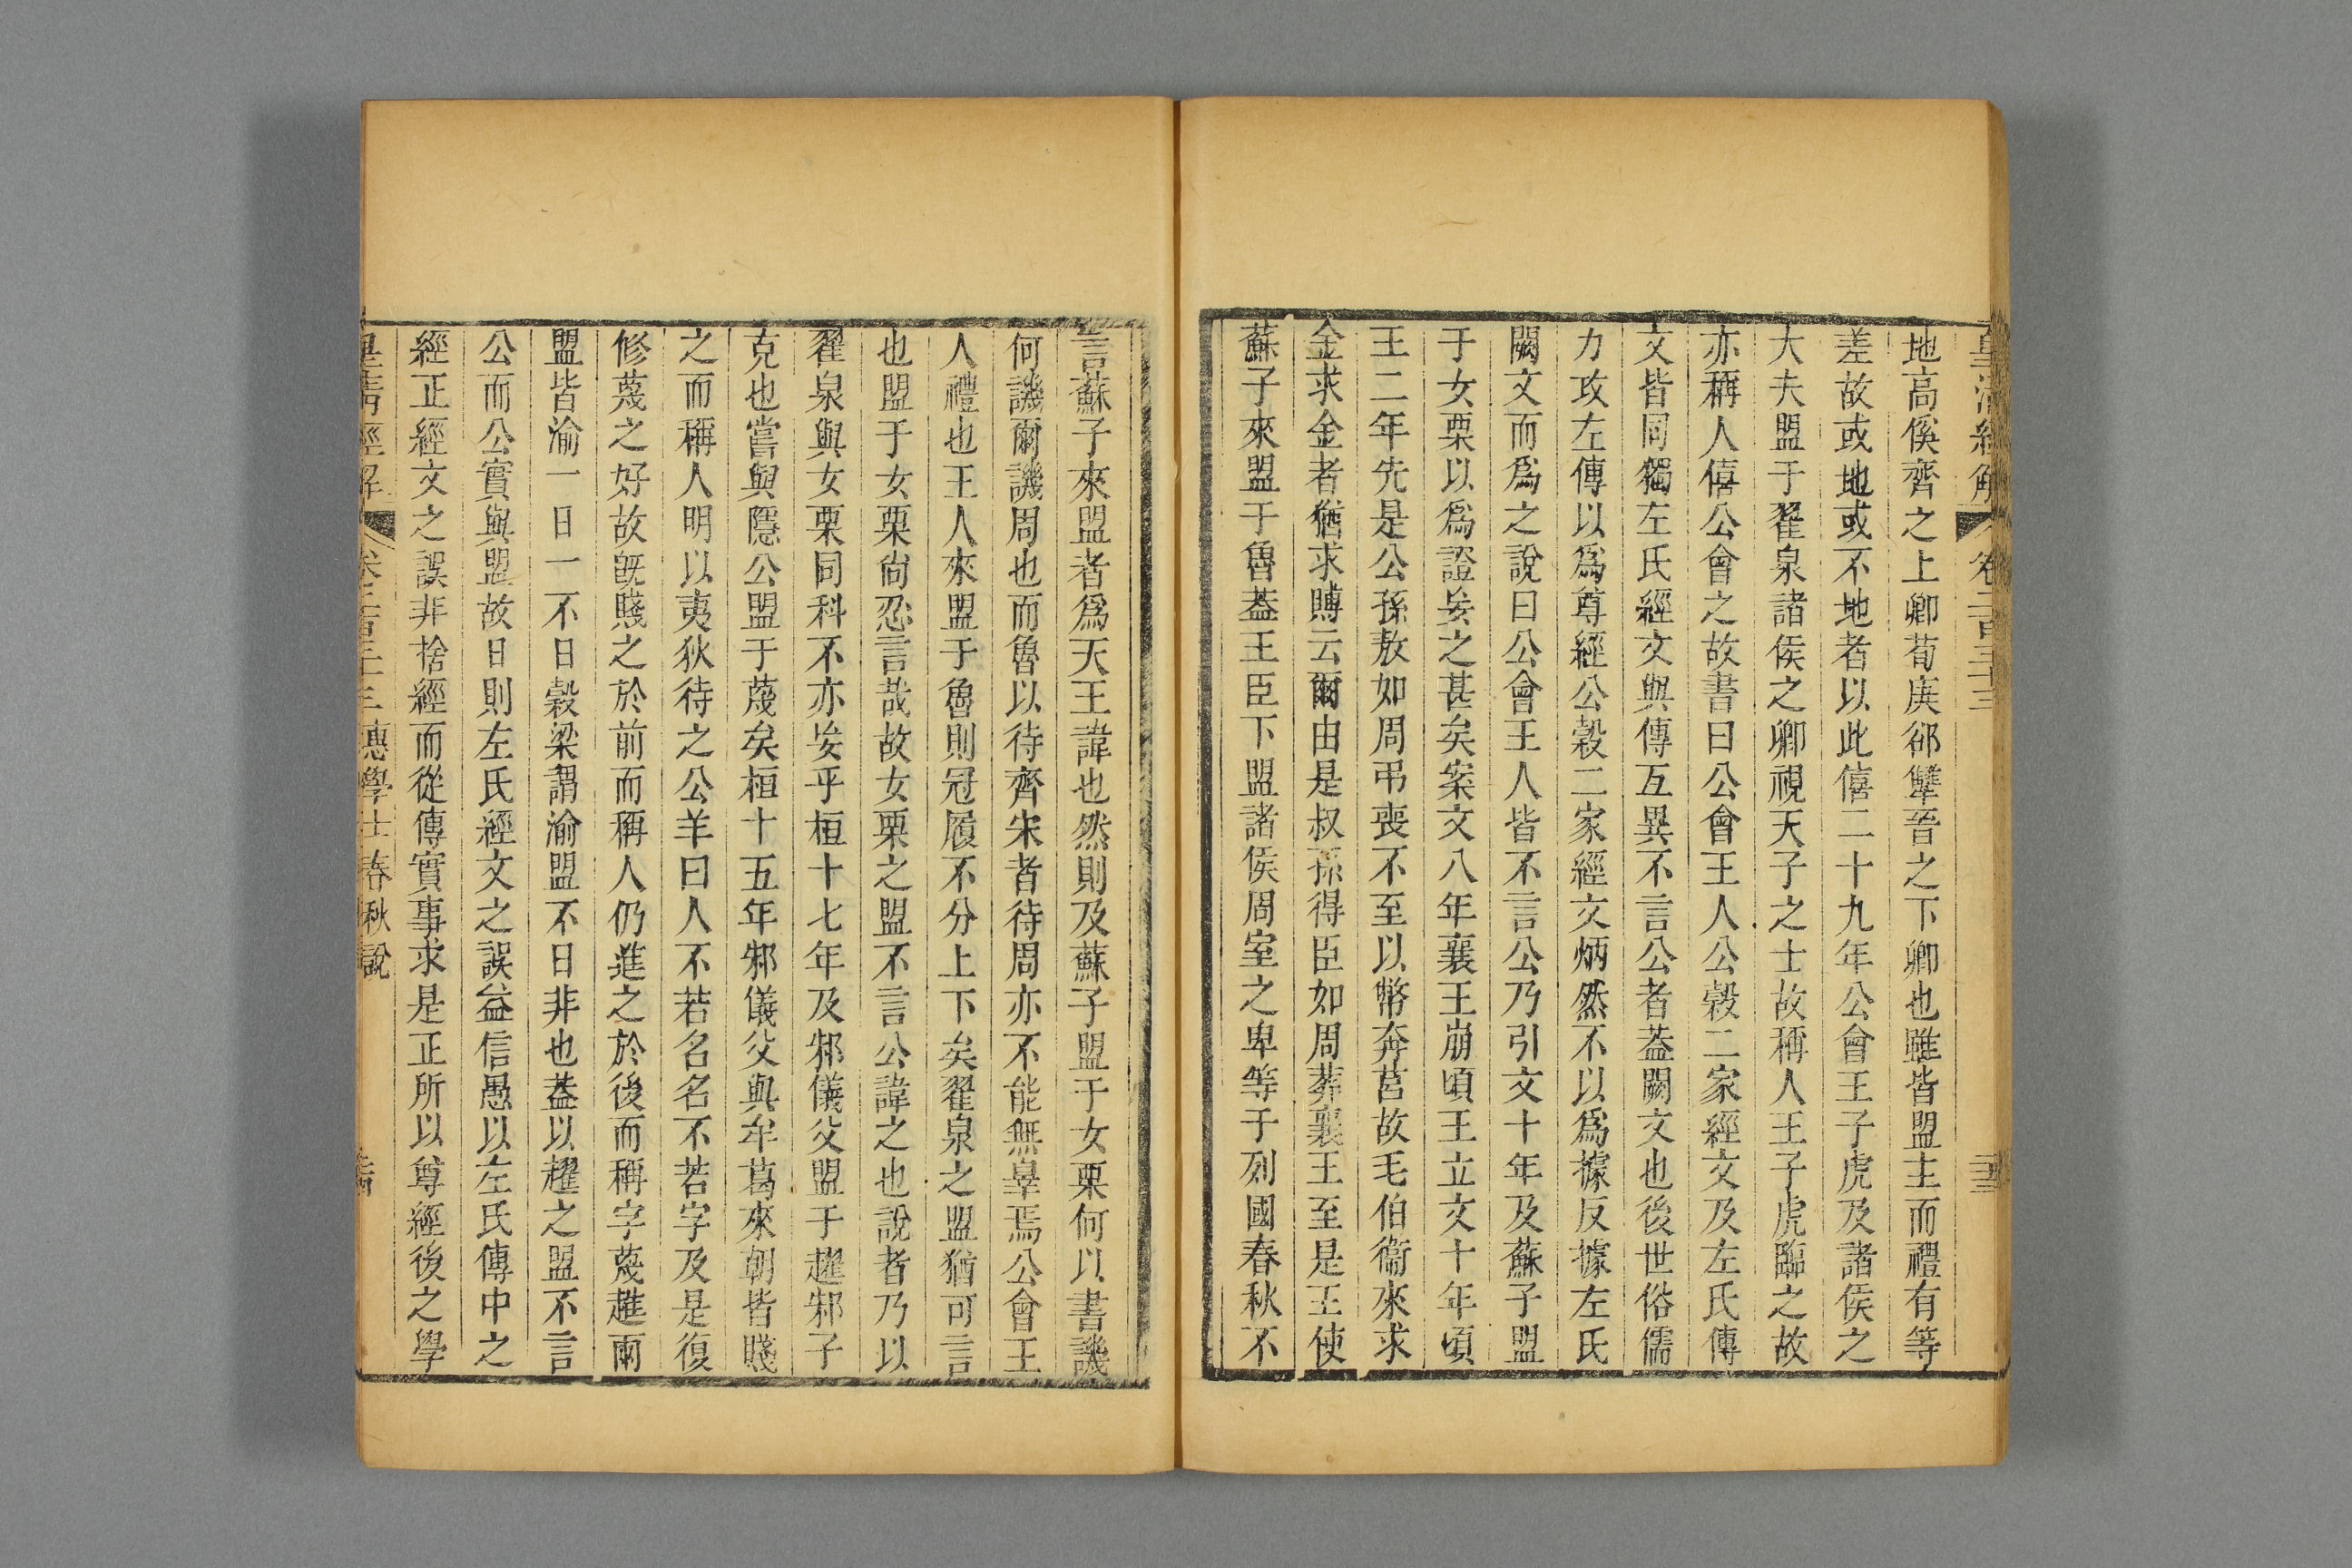 皇清經解 卷二百三十三
地高傒齊之上卿荀庚郤犨晉之下卿也雖皆盟主而禮有等
差故或地或不地者以此僖二十九年公會王子虎及諸侯之
大夫盟于翟泉諸侯之卿視天子之士故稱人王子虎臨之故
亦稱人僖公會之故書曰公會王人公榖二家經文及左氏傳
文皆同獨左氏經文與傳互異不言公者葢闕文也後世俗儒
力攻左傳以爲尊經公榖二家經文炳然不以爲據反據左氏
闕文而爲之說曰公會王人皆不言公乃引文十年及蘇子盟
于女栗以爲證妄之甚矣案文八年襄王崩頃王立文十年頃
王二年先是公孫敖如周弔喪不至以幣奔莒故毛伯衞來求
金求金者猶求賻云爾由是叔孫得臣如周葬襄王至是王使
蘇子來盟于魯葢王臣下盟諸侯周室之卑等于列國春秋不
言蘇子來盟者爲天王諱也然則及蘇子盟于女栗何以書譏
何譏爾譏周也而魯以待齊宋者待周亦不能無辠焉公會王
人禮也王人來盟于魯則冠履不分上下矣翟泉之盟猶可言
也盟于女栗尙忍言哉故女栗之盟不言公諱之也說者乃以
翟泉與女栗同科不亦妄乎桓十七年及邾儀父盟于趡邾子
克也嘗與隱公盟于蔑矣桓十五年邾儀父與牟葛來朝皆賤
之而稱人明以夷狄待之公羊曰人不若名名不若字及是復
修蔑之好故旣賤之於前而稱人仍進之於後而稱字蔑趡兩
盟皆渝一日一不日榖梁謂渝盟不日非也葢以趡之盟不言
公而公實與盟故日則左氏經文之誤益信愚以左氏傳中之
經正經文之誤非捨經而從傳實事求是正所以尊經後之學
皇清經解 惠學士春秋說